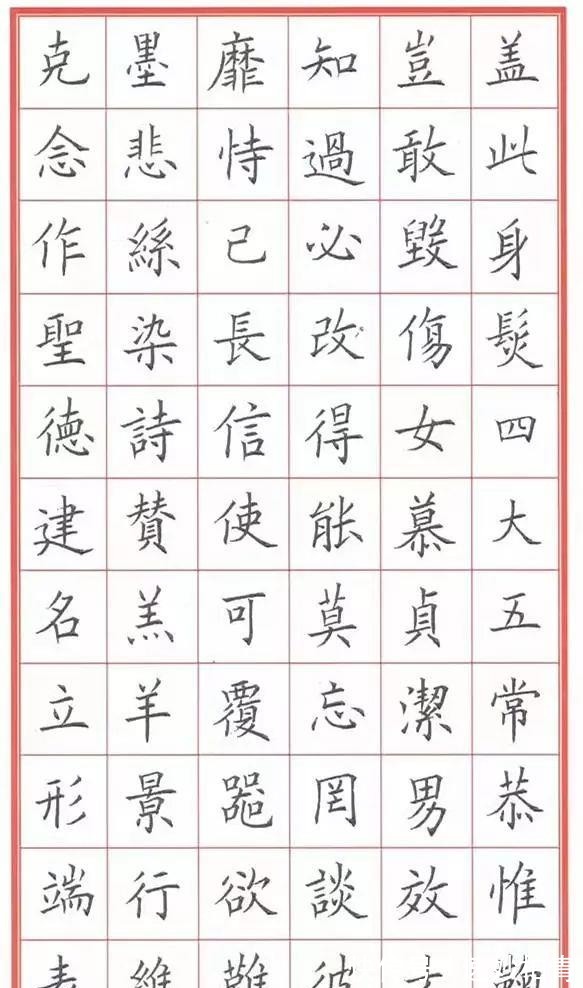 盖此身髮四大五常恭惟
豈敢毀傷女慕貞潔男效
知過必改得能莫忘罔談彼
靡恃己長信使可覆器欲難
墨悲絲染詩賛羔羊景行維
克念作聖德建名立形端表